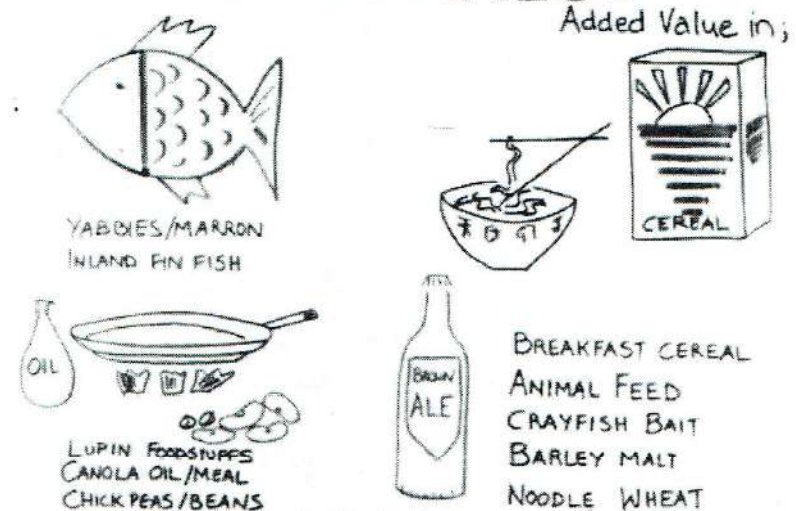 Added Value in;
CEREAL
YABBIES/MARRON
INLAND FIN FISH
OIL
LUPIN FOODSTUFFS
CANOLA OIL/MEAL
CHICK PEAS/BEANS
BROWN
ALE
BREAKFAST CEREAL
ANIMAL FEED
CRAYFISH BAIT
BARLEY MALT
NOODLE WHEAT